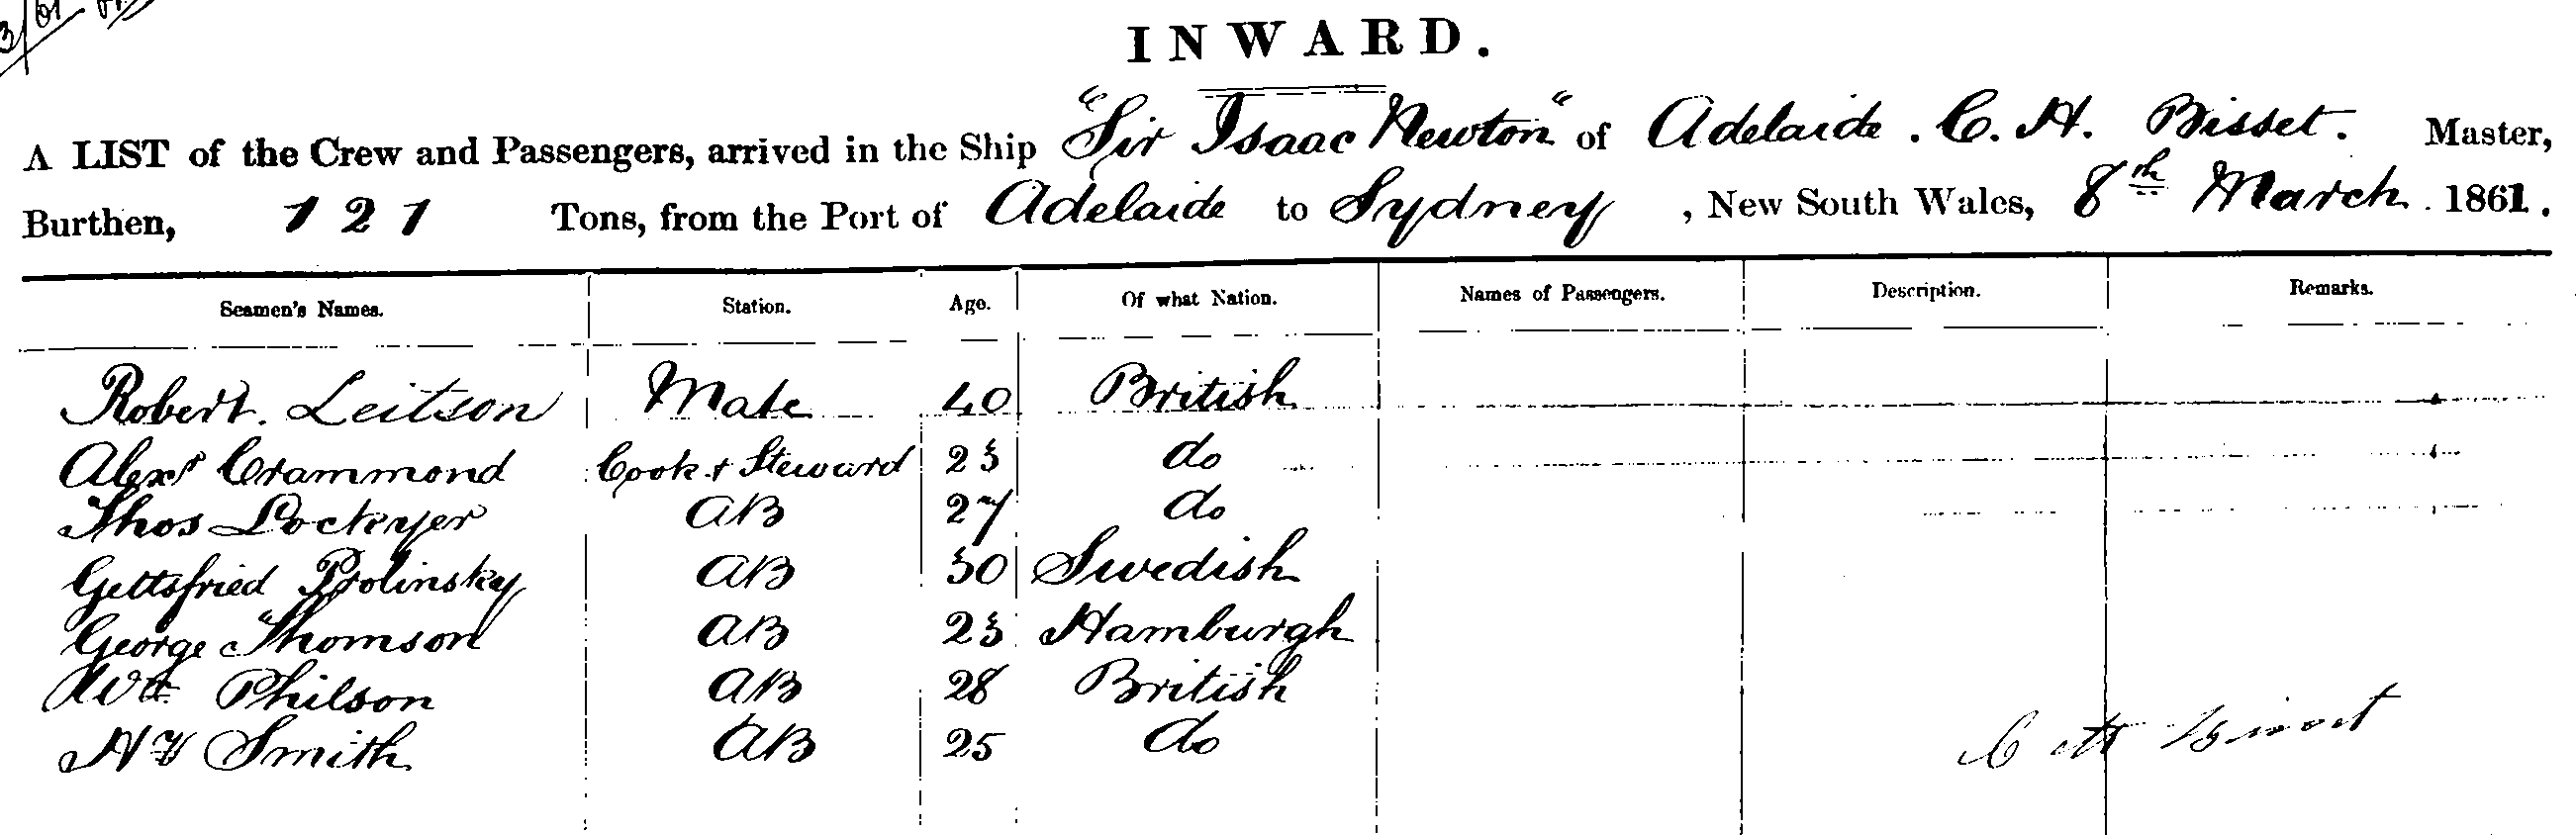 3/61
INWARD.
A LIST of the Crew and Passengers, arrived in the Ship "Sir Isaac Newton" of Adelaide. C. H. Bisset. Master,
Burthen, 121 Tons, from the Port of Adelaide to Sydney, New South Wales, 8th March 1861.
Seamen's Names. Station. Age. Of what Nation. Names of Passengers. Description. Remarks.
Robert. Leitson Mate 40 British
Alexr Crammond Cook & Steward 23 do
Thos Lockyer AB 27 do
Gettsfried Prolinsky AB 30 Swedish
George Thomson AB 23 Hamburgh
Wm Philson AB 28 British
Hy Smith AB 25 do
C H Bisset